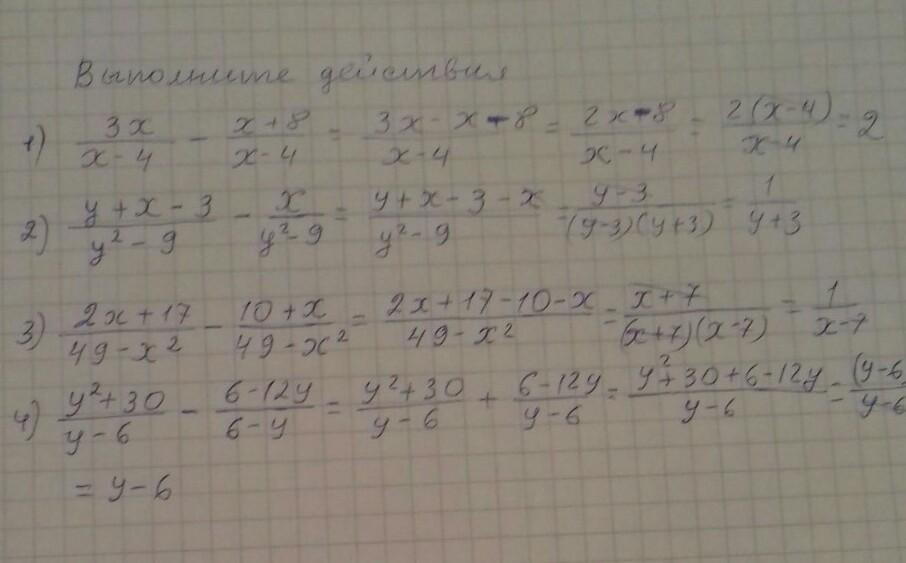 Выполните действия
1) \frac{3x}{x-4} - \frac{x+8}{x-4} = \frac{3x-x-8}{x-4} = \frac{2x-8}{x-4} = \frac{2(x-4)}{x-4} = 2
2) \frac{y+x-3}{y^2-9} - \frac{x}{y^2-9} = \frac{y+x-3-x}{y^2-9} = \frac{y-3}{(y-3)(y+3)} = \frac{1}{y+3}
3) \frac{2x+17}{49-x^2} - \frac{10+x}{49-x^2} = \frac{2x+17-10-x}{49-x^2} = \frac{x+7}{(x+7)(x-7)} = \frac{1}{x-7}
4) \frac{y^2+30}{y-6} - \frac{6-12y}{6-y} = \frac{y^2+30}{y-6} + \frac{6-12y}{y-6} = \frac{y^2+30+6-12y}{y-6} = \frac{(y-6}{y-6}
= y-6